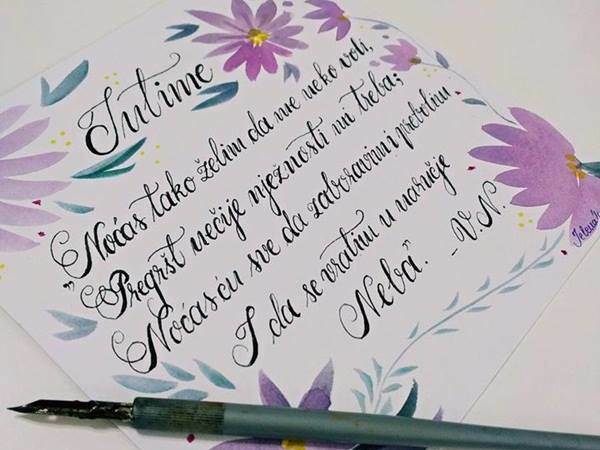 Intime
"Noćas tako želim da me neko voli,
Pregršt nečije nježnosti mi treba;
Noćas ću sve da zaboravim i prebolim
I da se vratim u naručje
Neba". - V.N.